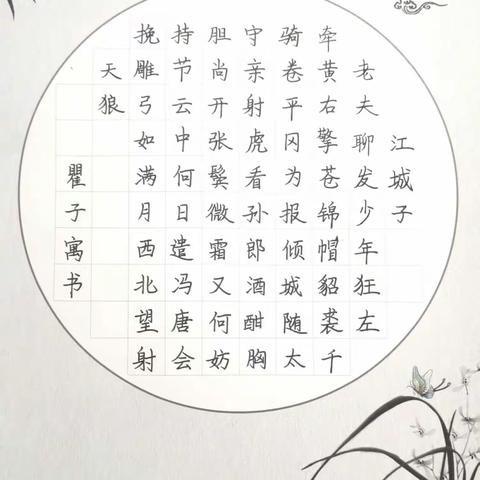 江城子
老夫聊发少年狂左
牵黄右擎苍锦帽貂裘千
骑卷平冈为报倾城随太
守亲射虎看孙郎酒酣胸
胆尚开张鬓微霜又何妨
持节云中何日遣冯唐会
挽雕弓如满月西北望射
天狼
瞿子寓书